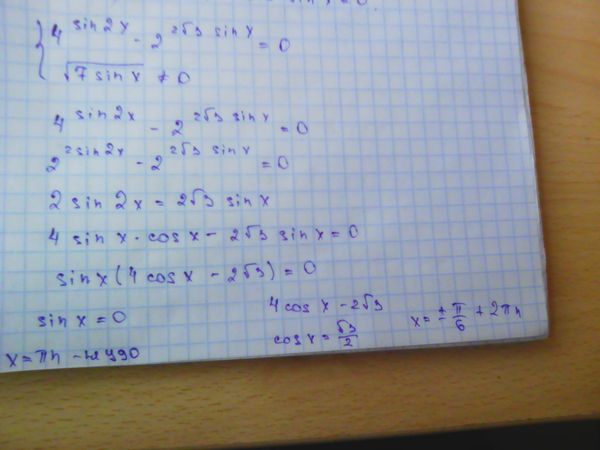 { 4^(sin2x) - 2^(2√3 sinx) = 0
√(7 sin x) ≠ 0
4^(sin2x) - 2^(2√3 sinx) = 0
2^(2sin2x) - 2^(2√3 sinx) = 0
2 sin 2x = 2√3 sin x
4 sin x · cos x - 2√3 sin x = 0
sin x (4 cos x - 2√3) = 0
sin x = 0
x = πn - не удо
4 cos x - 2√3
cos x = √3/2
x = ± π/6 + 2πn